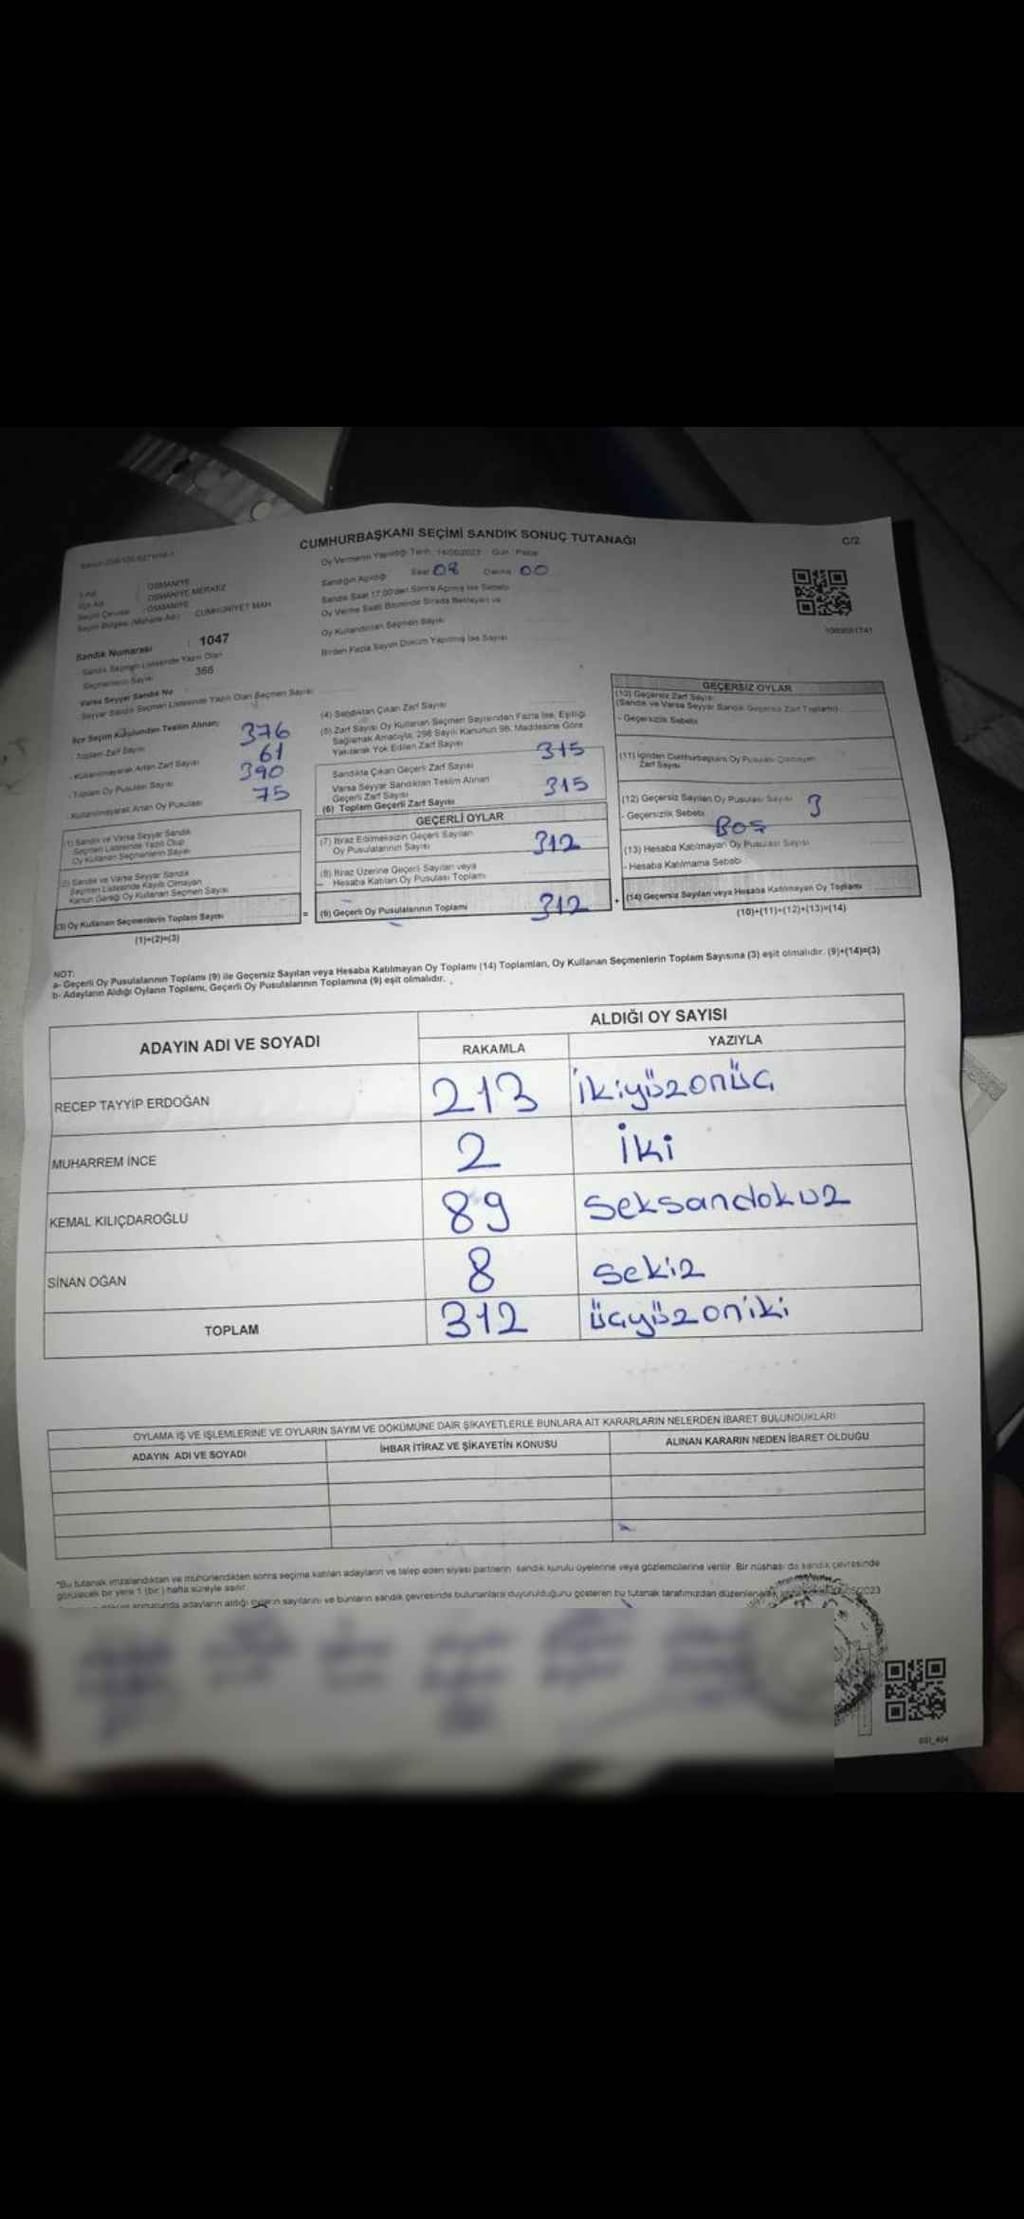 CUMHURBAŞKANI SEÇİMİ SANDIK SONUÇ TUTANAĞI
C/2
Oy Vermenin Yapıldığı Tarih 14/05/2023 Gün Pazar
Sandığın Açıldığı Saat 08 Dakika 00
Sandık Saat 17.00'den Sonra Açılmış İse Sebebi
Oy Verme Saati Bitiminde Sırada Bekleyen ve
Oy Kullandırılan Seçmen Sayısı
Birden Fazla Sayım Döküm Yapılmış İse Sayısı
İl Adı : OSMANİYE
İlçe Adı : OSMANİYE MERKEZ
Seçim Çevresi : OSMANİYE
Seçim Bölgesi (Mahalle Adı) : CUMHURİYET MAH
Sandık Numarası : 1047
Sandık Seçmen Listesinde Yazılı Olan
Seçmenlerin Sayısı 366
Varsa Seyyar Sandık No
Seyyar Sandık Seçmen Listesinde Yazılı Olan Seçmen Sayısı
İlçe Seçim Kurulundan Teslim Alınan;
Toplam Zarf Sayısı 376
- Kullanılmayarak Artan Zarf Sayısı 61
- Toplam Oy Pusulası Sayısı 390
- Kullanılmayarak Artan Oy Pusulası 75
(1) Sandık ve Varsa Seyyar Sandık
Seçmen Listesinde Yazılı Olup
Oy Kullanan Seçmenlerin Sayısı
(2) Sandık ve Varsa Seyyar Sandık
Seçmen Listesinde Kayıtlı Olmayan
Kanun Gereği Oy Kullanan Seçmen Sayısı
(3) Oy Kullanan Seçmenlerin Toplam Sayısı
(1)+(2)=(3)
(4) Sandıktan Çıkan Zarf Sayısı
(5) Zarf Sayısı Oy Kullanan Seçmen Sayısından Fazla İse, Eşitliği
Sağlamak Amacıyla, 298 Sayılı Kanunun 98. Maddesine Göre
Yakılarak Yok Edilen Zarf Sayısı
Sandıkta Çıkan Geçerli Zarf Sayısı 315
Varsa Seyyar Sandıktan Teslim Alınan
Geçerli Zarf Sayısı
(6) Toplam Geçerli Zarf Sayısı 315
GEÇERLİ OYLAR
(7) İtiraz Edilmeksizin Geçerli Sayılan
Oy Pusulalarının Sayısı 312
(8) İtiraz Üzerine Geçerli Sayılan veya
Hesaba Katılan Oy Pusulası Toplamı
(9) Geçerli Oy Pusulalarının Toplamı 312
GEÇERSİZ OYLAR
(10) Geçersiz Zarf Sayısı
(Sandık ve Varsa Seyyar Sandık Geçersiz Zarf Toplamı)
- Geçersizlik Sebebi
(11) İçinden Cumhurbaşkanı Oy Pusulası Çıkmayan
Zarf Sayısı
(12) Geçersiz Sayılan Oy Pusulası Sayısı 3
- Geçersizlik Sebebi BOŞ
(13) Hesaba Katılmayan Oy Pusulası Sayısı
- Hesaba Katılmama Sebebi
(14) Geçersiz Sayılan veya Hesaba Katılmayan Oy Toplamı
(10)+(11)+(12)+(13)=(14)
NOT:
a- Geçerli Oy Pusulalarının Toplamı (9) ile Geçersiz Sayılan veya Hesaba Katılmayan Oy Toplamı (14) Toplamları, Oy Kullanan Seçmenlerin Toplam Sayısına (3) eşit olmalıdır. (9)+(14)=(3)
b- Adayların Aldığı Oyların Toplamı, Geçerli Oy Pusulalarının Toplamına (9) eşit olmalıdır.
ADAYIN ADI VE SOYADI
ALDIĞI OY SAYISI
RAKAMLA YAZIYLA
RECEP TAYYİP ERDOĞAN 213 İkiyüzonüç
MUHARREM İNCE 2 İki
KEMAL KILIÇDAROĞLU 89 Seksandokuz
SİNAN OĞAN 8 Sekiz
TOPLAM 312 Üçyüzoniki
OYLAMA İŞ VE İŞLEMLERİNE VE OYLARIN SAYIM VE DÖKÜMÜNE DAİR ŞİKAYETLERLE BUNLARA AİT KARARLARIN NELERDEN İBARET BULUNDUKLARI
ADAYIN ADI VE SOYADI İHBAR İTİRAZ VE ŞİKAYETİN KONUSU ALINAN KARARIN NEDEN İBARET OLDUĞU
*Bu tutanak imzalandıktan ve mühürlendikten sonra seçime katılan adayların ve talep eden siyasi partilerin sandık kurulu üyelerine veya gözlemcilerine verilir. Bir nüshası da sandık çevresinde
görülecek bir yere 1 (bir) hafta süreyle asılır.
adayların aldığı oyların sayılarını ve bunların sandık çevresinde bulunanlara duyurulduğunu gösteren bu tutanak tarafımızdan düzenlenerek